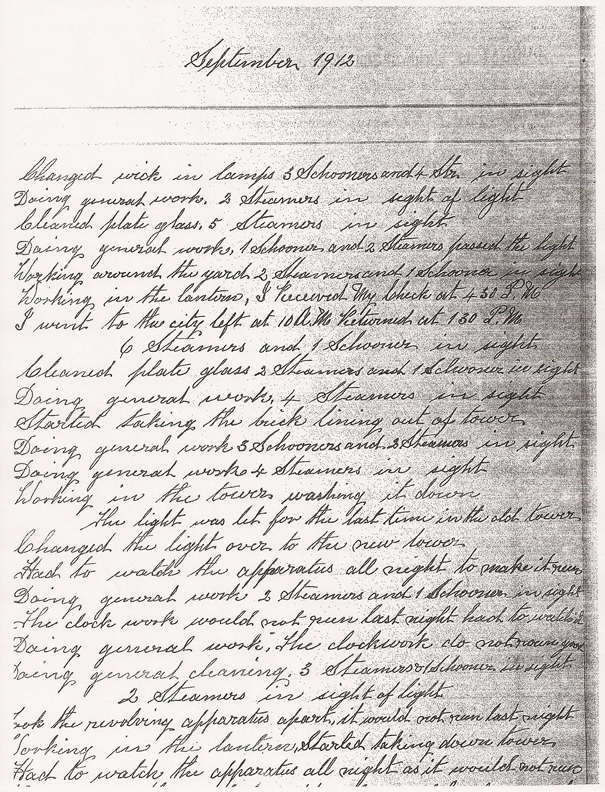 September 1912
Changed wick in lamps 3 Schooners and 4 Str. in sight
Doing general work. 2 Steamers in sight of light
Cleaned plate glass, 5 Steamers in sight
Doing general work, 1 Schooner and 2 Steamers passed the light
Working around the yard 2 Steamers and 1 Schooner in sight
Working in the lantern, I Received My Check at 4 30 P.M
I went to the city left at 10 A.M Returned at 1 30 P.M
6 Steamers and 1 Schooner in sight
Cleaned plate glass 2 Steamers and 1 Schooner in sight
Doing general work, 4 Steamers in sight
Started taking the brick lining out of tower
Doing general work 3 Schooners and 2 Steamers in sight
Doing general work 4 Steamers in sight
Working in the tower washing it down
The light was let for the last time in the old tower
Changed the light over to the new tower
Had to watch the apparatus all night to make it run
Doing general work 2 Steamers and 1 Schooner in sight
The clock work would not run last night had to watch
Doing general work, The clockwork do not run
Doing general cleaning, 3 Steamers & 1 Schooner in sight
2 Steamers in sight of light
ook the revolving apparatus apart, it would not run last night
Working in the lantern, Started taking down tower
Had to watch the apparatus all night as it would not run